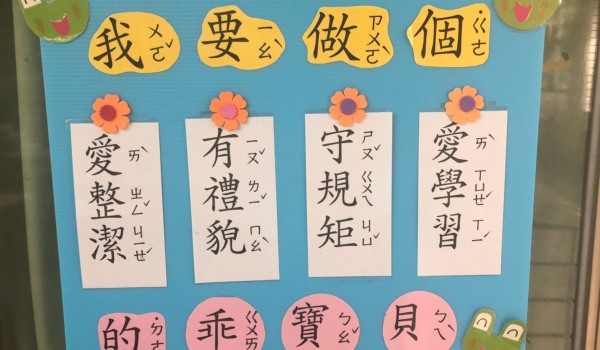 我 ㄨㄛˇ 要 ㄧㄠˋ 做 ㄗㄨㄛˋ 個 ˙ㄍㄜ
愛 ㄞˋ 整 ㄓㄥˇ 潔 ㄐㄧㄝˊ
有 ㄧㄡˇ 禮 ㄌㄧˇ 貌 ㄇㄠˋ
守 ㄕㄡˇ 規 ㄍㄨㄟ 矩 ㄐㄩˇ
愛 ㄞˋ 學 ㄒㄩㄝˊ 習 ㄒㄧˊ
的 ˙ㄉㄜ 乖 ㄍㄨㄞ 寶 ㄅㄠˇ 貝 ㄅㄟˋ